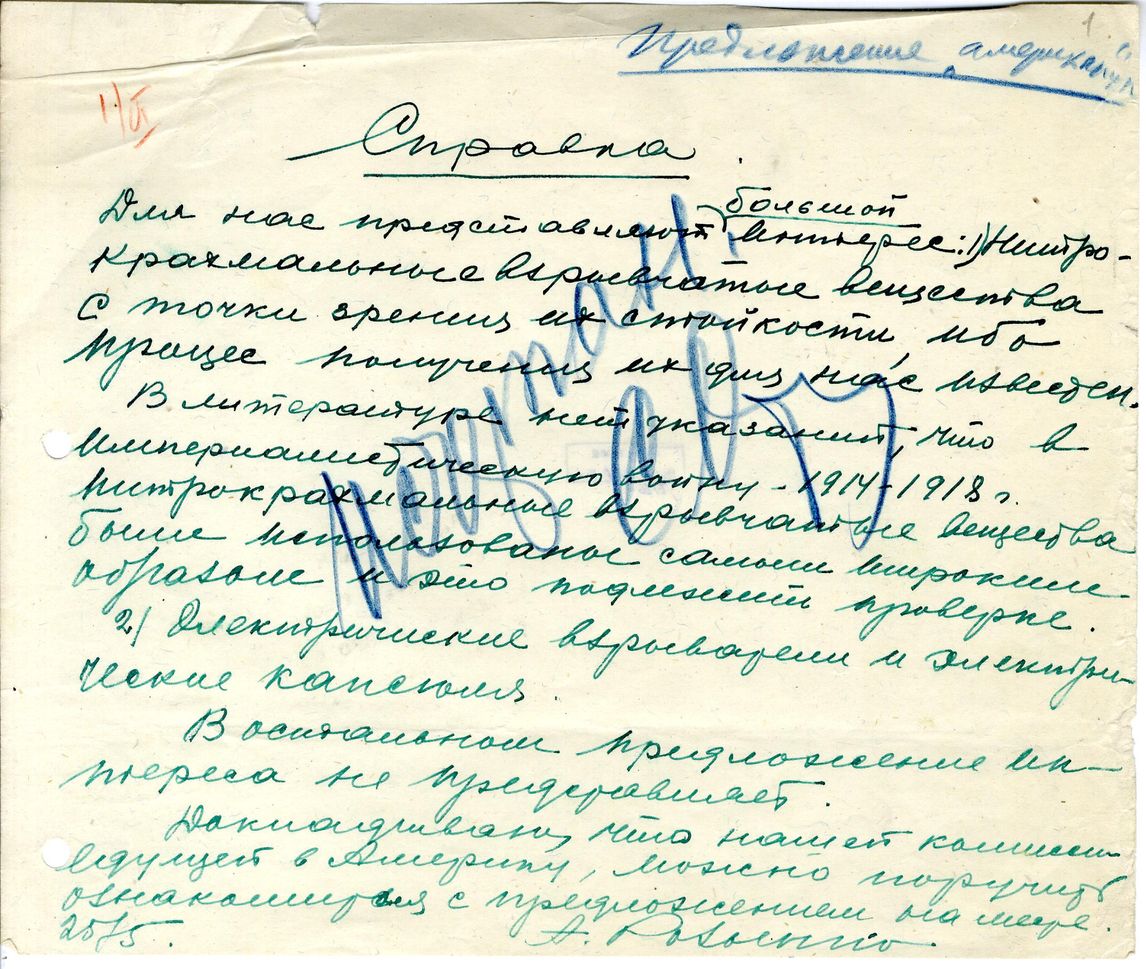 1
Предложение американ
Справка.
большой
Для нас представляют интерес: 1) Нитро-
крахмальные взрывчатые вещества
с точки зрения их стойкости, ибо
процес получения их для нас известен.
В литературе нет указаний, что в
империалистическую войну - 1914-1918 г.
нитрокрахмальные взрывчатые вещества
были использованы самым широким
образом и это подлежит проверке.
2/ Электрические взрыватели и электри-
ческие капсюля.
В остальном предложение ин-
тереса не представляет.
Докладываю, что нашей комиссии
едущей в Америку, можно поручить
ознакомится с предложением на месте.
25/5.